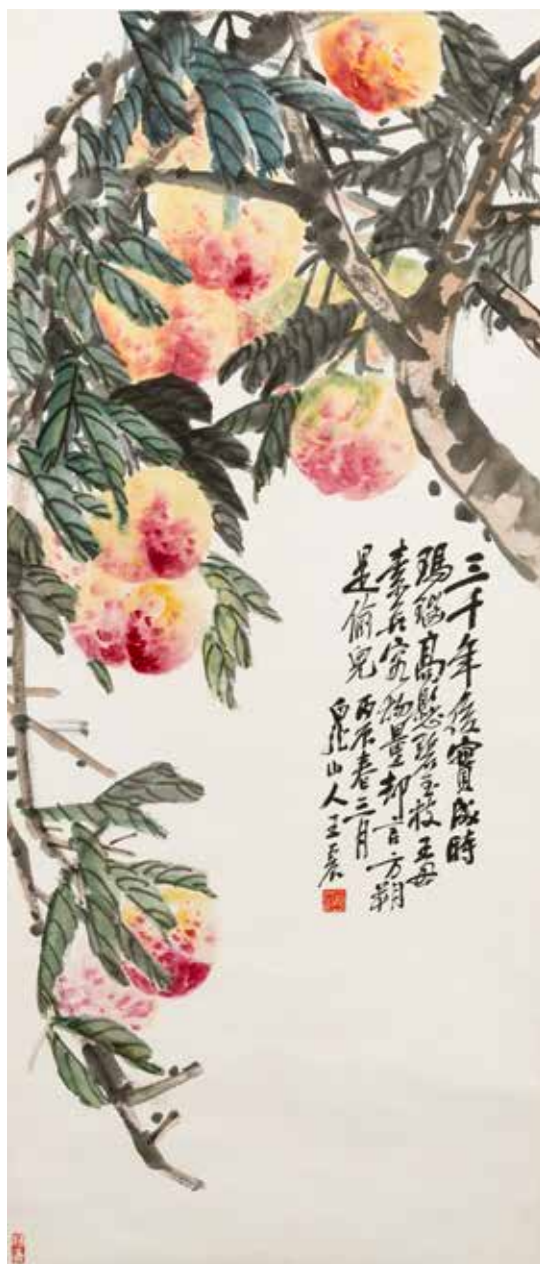 三千年後實成時
瑪瑙高懸碧玉枝王母
素容物量却言方朔
是偷兒丙辰春三月
白龍山人王震